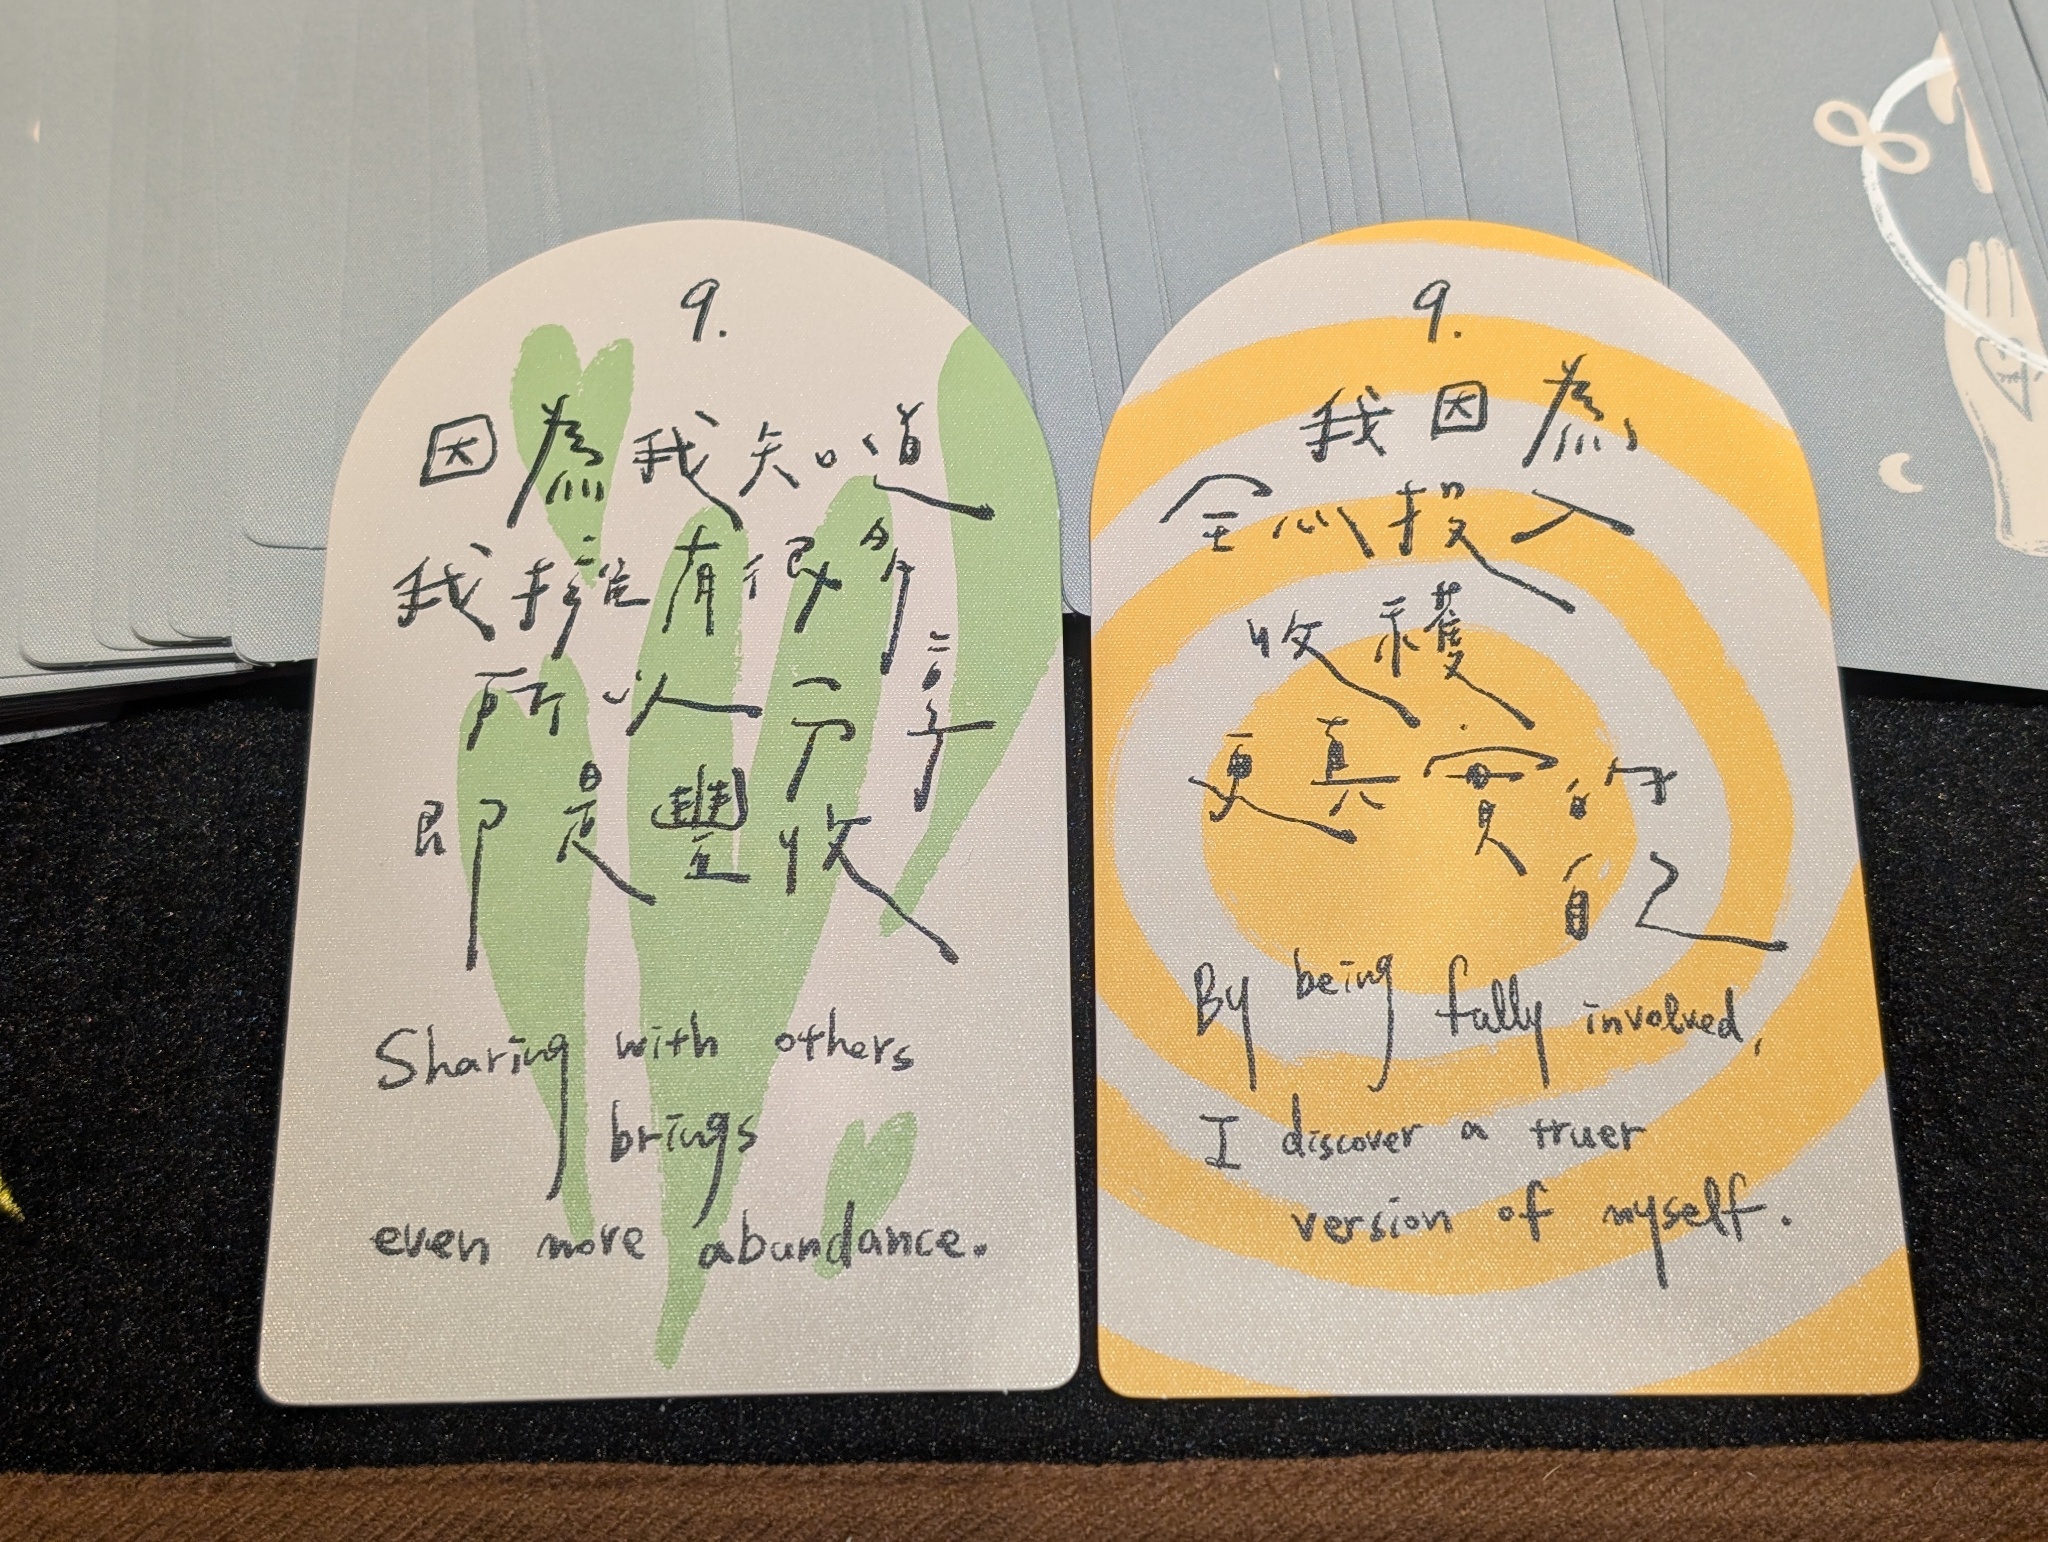 9.
因為我知道
我擁有很多
所以分享
即是豐收
Sharing with others
brings
even more abundance.
9.
我因為
全然投入
收穫
更真實的
自己
By being fully involved,
I discover a truer
version of myself.